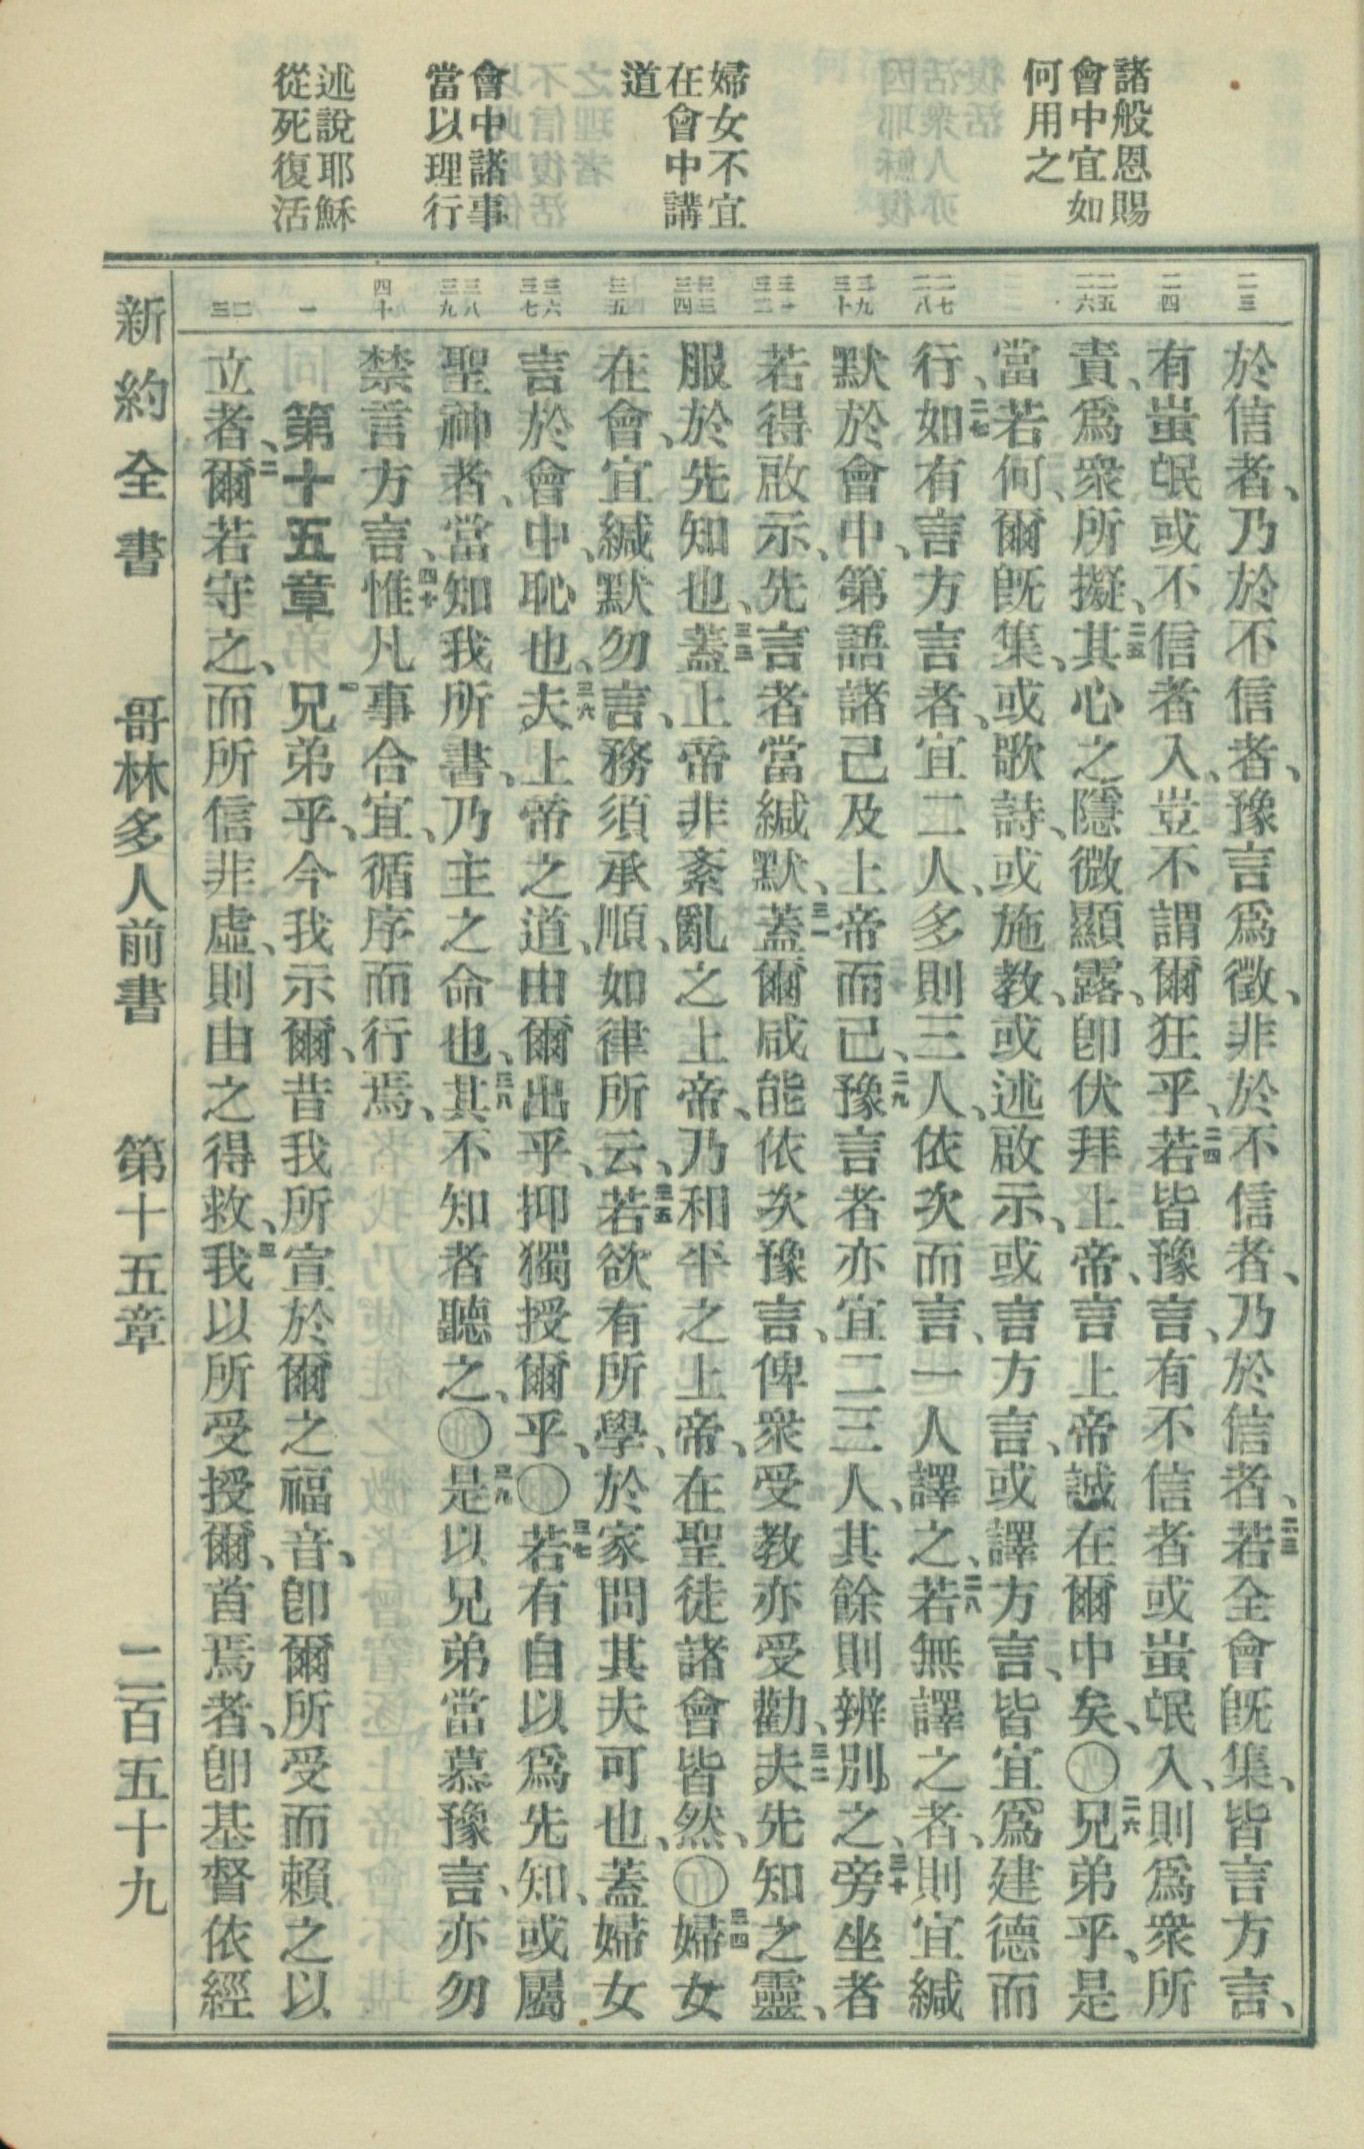 諸般恩賜
會中宜如
何用之
婦女不宜
在會中講
道
會中諸事
當以理行
述說耶穌
從死復活
二三
二四
二五
二六
二七
二八
二九
三十
三一
三二
三三
三四
三五
三六
三七
三八
三九
四十
一
二
三
於信者、乃於不信者、豫言爲徵、非於不信者、乃於信者、二三若全會旣集、皆言方言、
有蚩氓或不信者入、豈不謂爾狂乎、二四若皆豫言、有不信者或蚩氓入、則爲衆所
責、爲衆所擬、二五其心之隱微顯露、卽伏拜上帝、言上帝誠在爾中矣、〇二六兄弟乎、是
當若何、爾旣集、或歌詩、或施教、或述啟示、或言方言、或譯方言、皆宜爲建德而
行、二七如有言方言者、宜二人、多則三人、依次而言、一人譯之、二八若無譯之者、則宜緘
默於會中、第語諸己及上帝而已、二九豫言者亦宜二三人、其餘則辨別之、三十旁坐者
若得啟示、先言者當緘默、三一蓋爾咸能依次豫言、俾衆受教亦受勸、三二夫先知之靈、
服於先知也、三三蓋上帝非紊亂之上帝、乃和平之上帝、在聖徒諸會皆然、〇三四婦女
在會、宜緘默勿言、務須承順、如律所云、三五若欲有所學、於家問其夫可也、蓋婦女
言於會中、恥也、三六夫上帝之道、由爾出乎、抑獨授爾乎、〇三七若有自以爲先知、或屬
聖神者、當知我所書、乃主之命也、三八其不知者聽之、〇三九是以兄弟當慕豫言、亦勿
禁言方言、四十惟凡事合宜、循序而行焉、
第十五章　一兄弟乎、今我示爾、昔我所宣於爾之福音、卽爾所受而賴之以
立者、二爾若守之、而所信非虛、則由之得救、三我以所受授爾、首焉者、卽基督依經
新約全書　哥林多人前書　第十五章　二百五十九